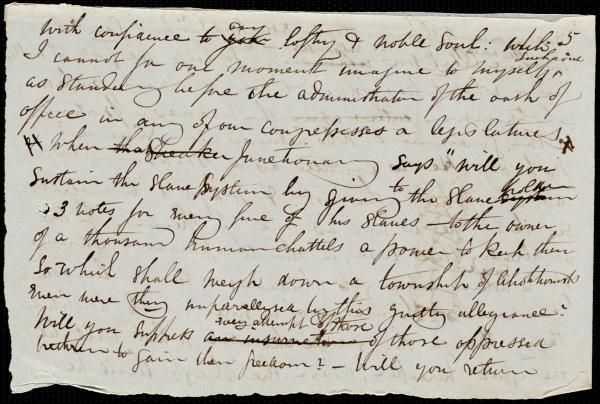 5
With confidence to any yok lofty & noble Soul: While
I cannot for one moment imagine to myself Such a one
as Standing before the administrator of the oath of
office in any of our Congresses or legislatures
When the Speaker functionary says "Will you
Sustain the Slave System by giving to the Slave holder System
3 votes for every five of his Slaves – to the owner
of a thousand human chattels a power to keep them
So which shall weigh down a township of
even were they unparallysed by this guilty allegiance?
Will you Suppress an insurrection every attempt of those of those oppressed
to gain their freedom? – Will you return